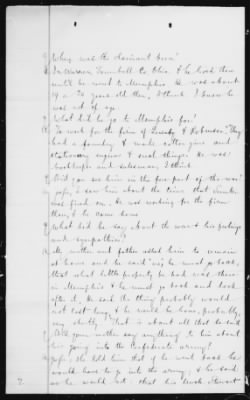 Q Where was the claimant born?
A In Warren Trumbull Co Ohio. & he lived there
until he went to Memphis. He was about
19 or 20 years old then, I think. I know he
was not of age
Q What did he go to Memphis for?
A To work for the firm of & Robinson. They
had a foundry & make cotton gins and
stationary engines & such things. He was
bookkeeper and salesman, I think
Q Did you see him in the fore part of the war?
A Yes, I saw him about the time that Sumter
was fired on. He was working for the firm
then, & he came home
Q What did he say about the war & his feelings
and sympathies?
A My mother and father asked him to remain
at home and he said no, he must go back,
that what little property he had was there
in Memphis & he must go back and look
after it. He said the thing probably would
not last long, & he would be home, probably,
very shortly. That is about all that he said
Q Did your mother say anything to him about
his going into the Confederate army?
A Yes, she told him that if he went back he
would have to go into the army, & he said
no he would not: that his Uncle Stewart
2